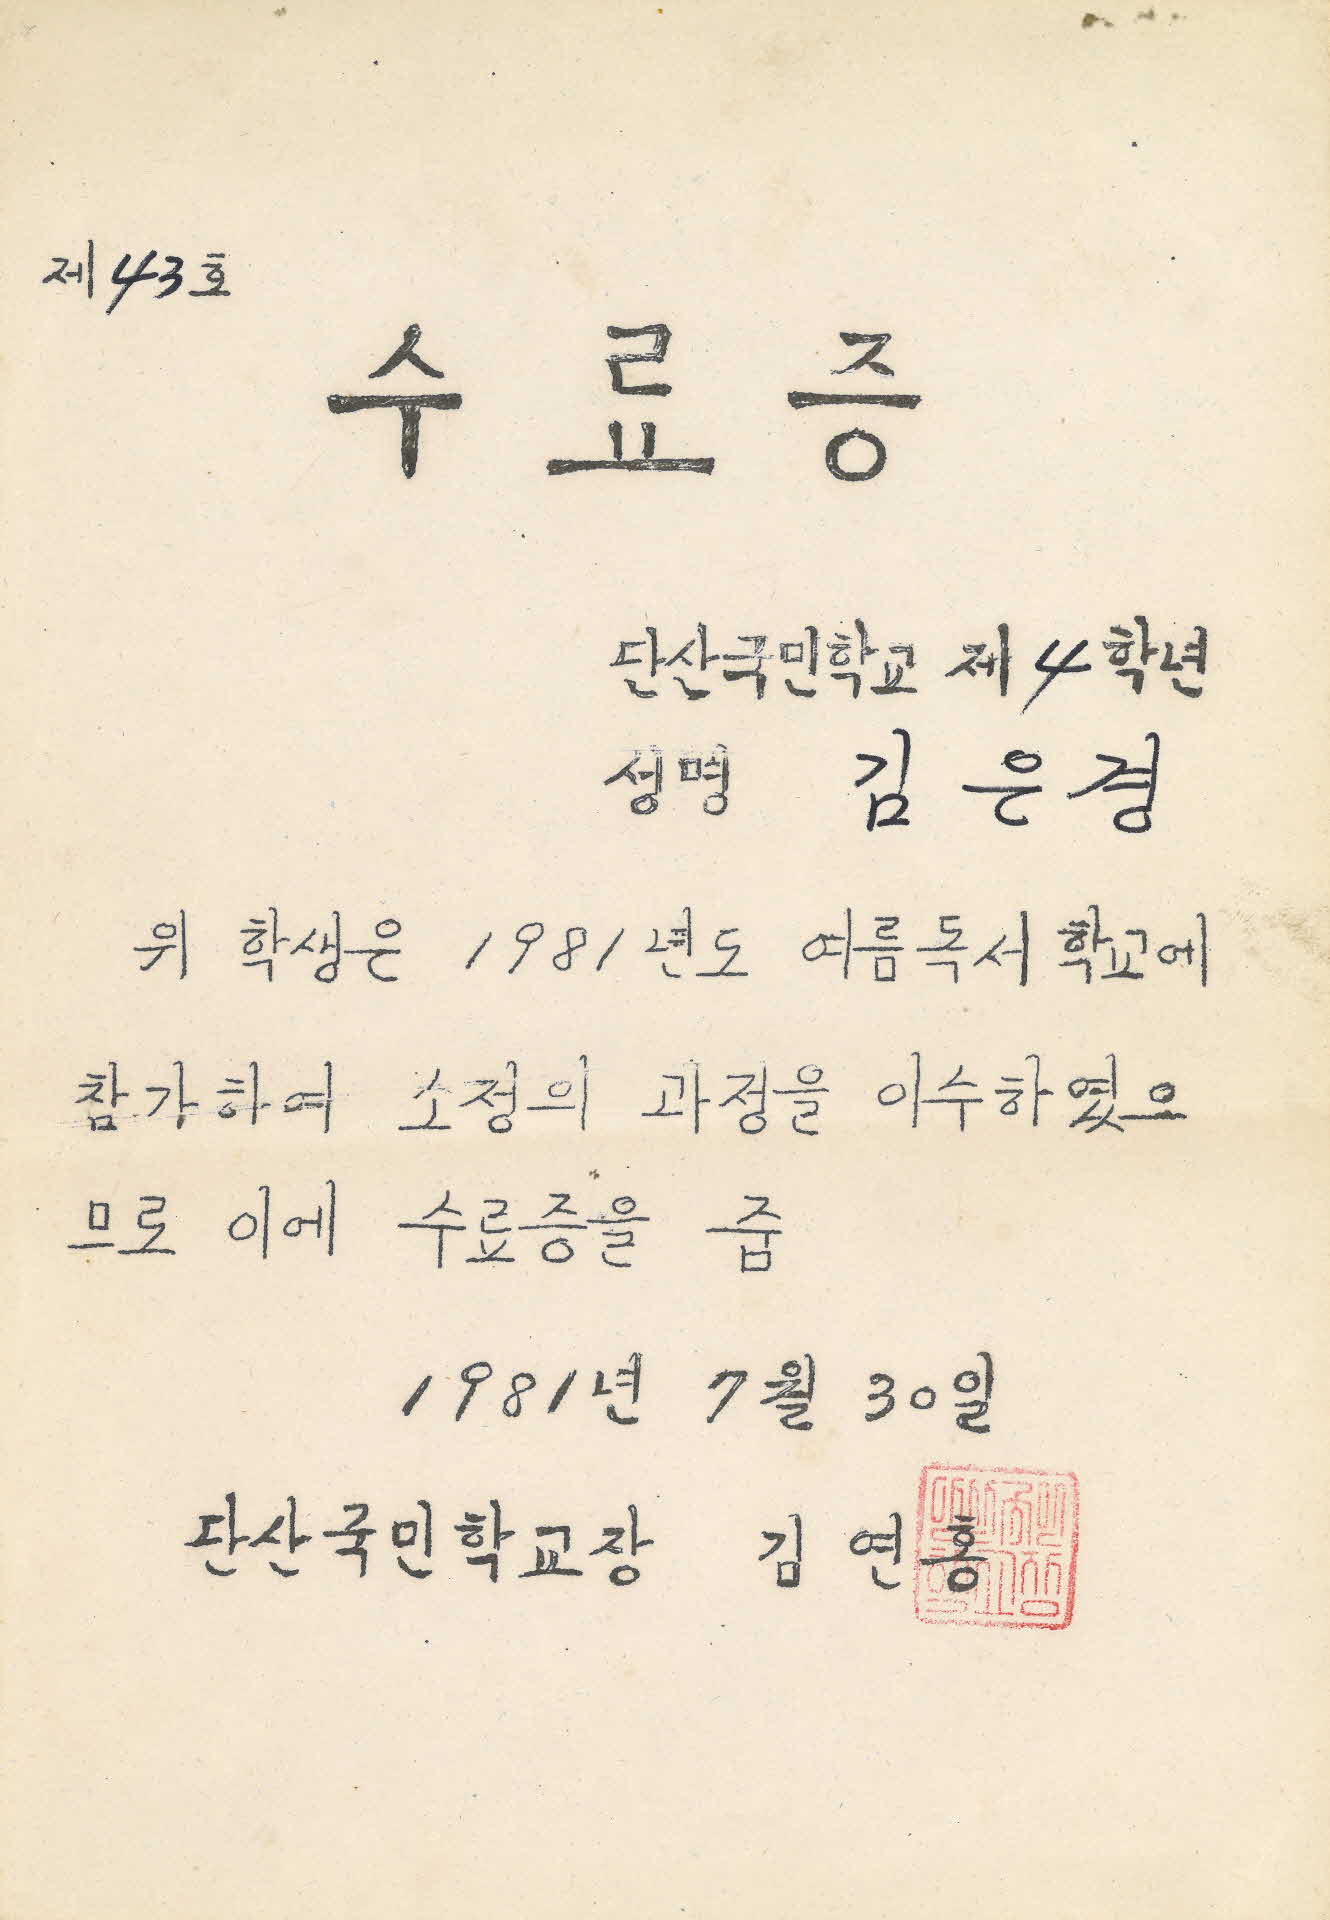 제43호
수료증
단산국민학교 제4학년
성명 김은경
위 학생은 1981년도 여름독서학교에
참가하여 소정의 과정을 이수하였으
므로 이에 수료증을 줌
1981년 7월 30일
단산국민학교장 김연홍